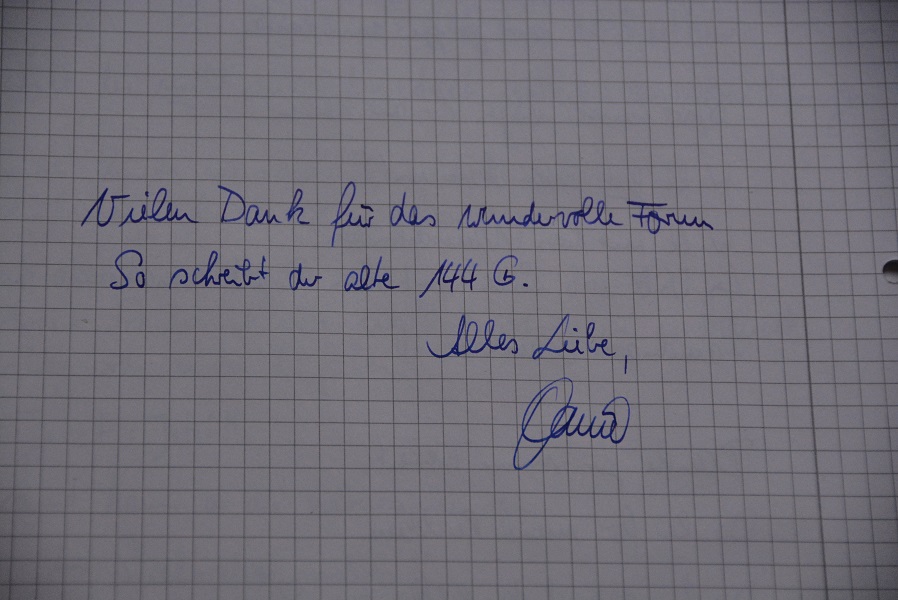 Vielen Dank für das wundervolle Forum
So schreibt der alte 144 G.
Alles Liebe,